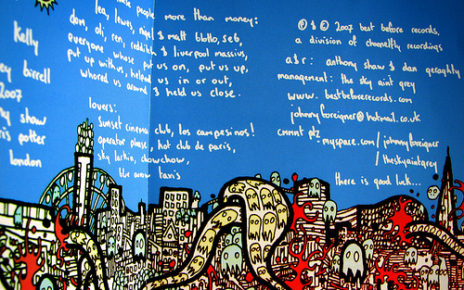 kelly
birrell
2007
shaw
potter
london
people more than money:
lea, lewes,
dan, oli, ren,
& matt
seb,
& liverpool massive,
everyone whose
us on, put us up,
put up with us,
us in or out,
whored us around
& held us close.
lovers:
sunset cinema club, los campesinos!
operator please, hot club de paris,
sky larkin, dowchow,
the answer taxis
℗ & © 2007 best before records,
a division of chanelfly recordings
a&r: anthony shaw & dan geraghty
management: the sky aint grey
www.bestbeforerecords.com
johnnyforeigner@hotmail.co.uk
cmmnt plz
:myspace.com/johnnyforeigner
/theskyaintgrey
there is good luck...